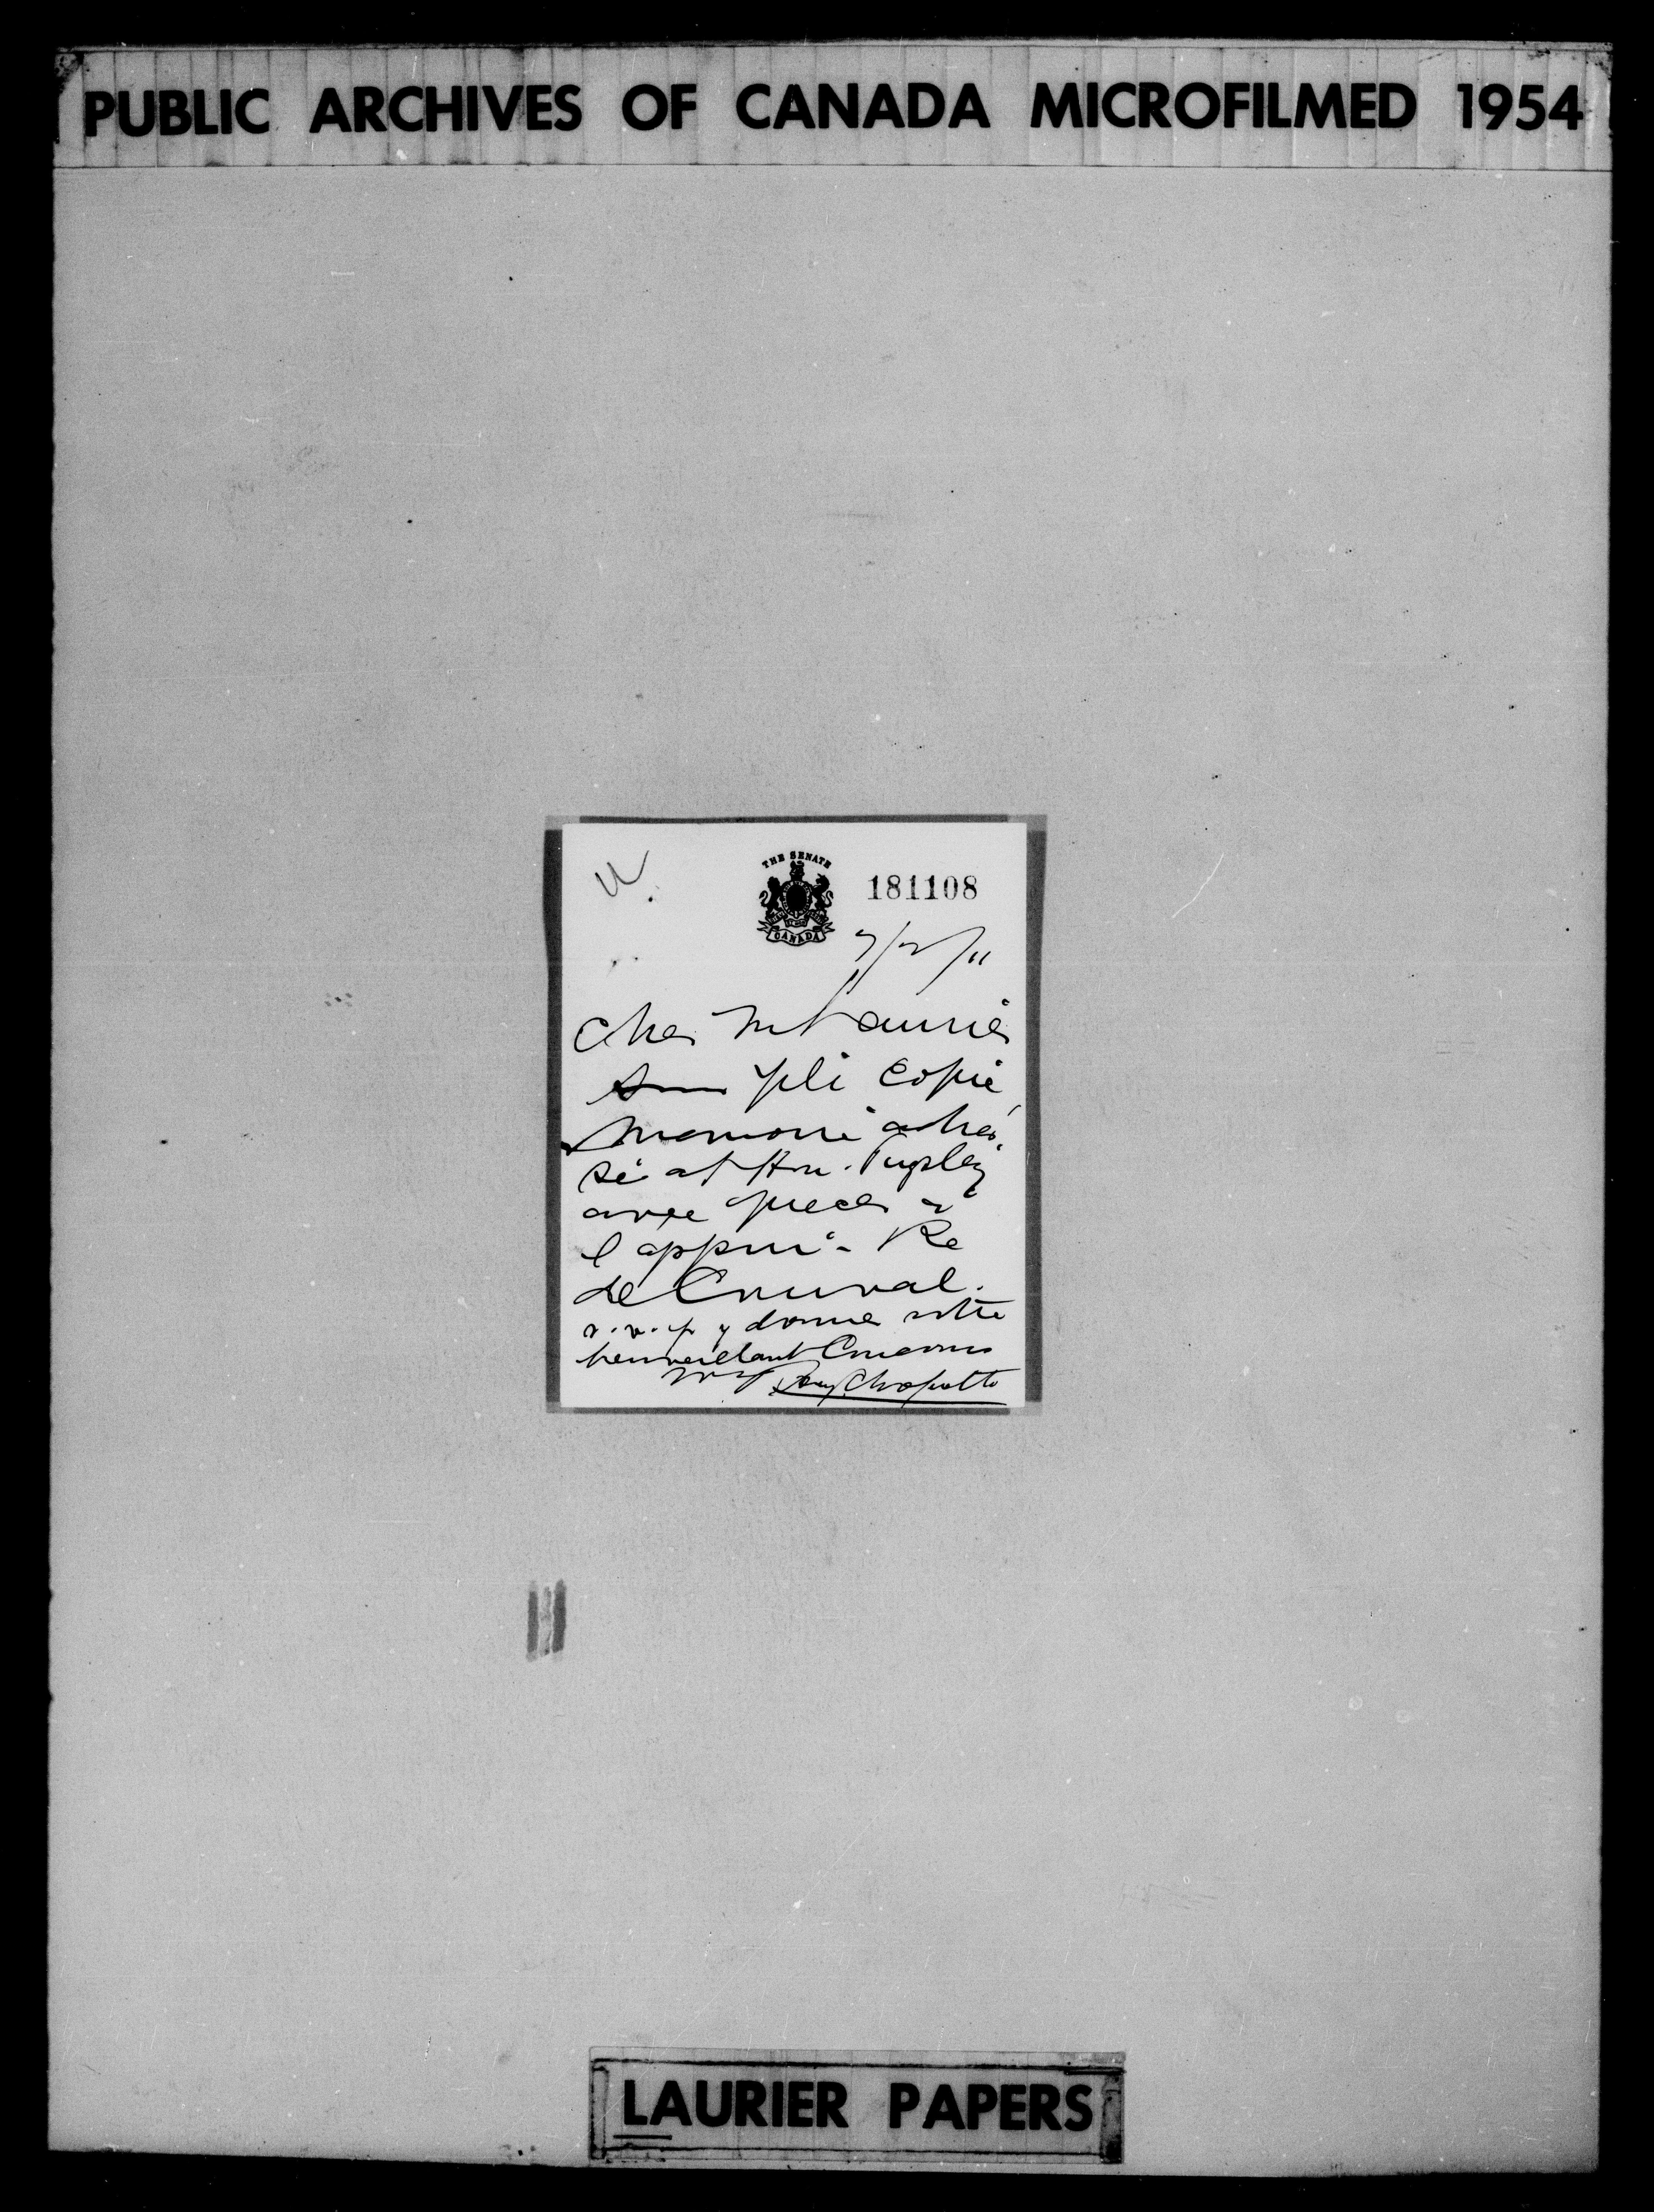 PUBLIC ARCHIVES OF CANADA MICROFILMED 1954
THE SENATE
181108
CANADA
7/2/11
Cher M Laurier
pli copie
memoire adres
sé at Hon. Pugsley
avec pieces a
l appui - Re
de Courval.
s.v.p y donner votre
bienveillant Concours
Choquette
LAURIER PAPERS